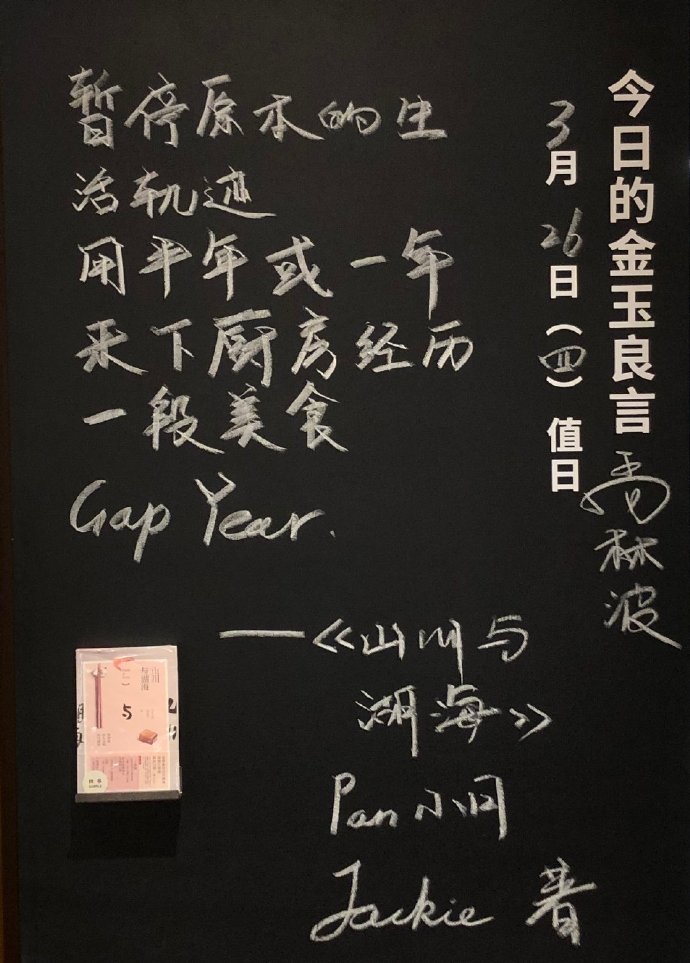 今日的金玉良言
3月26日（四）值日
禹林波
暂停原本的生
活轨迹
用半年或一年
来下厨房经历
一段美食
Gap Year.
——《山川与
湖海》
Pan小月
Jackie 著
山川
与湖海
与